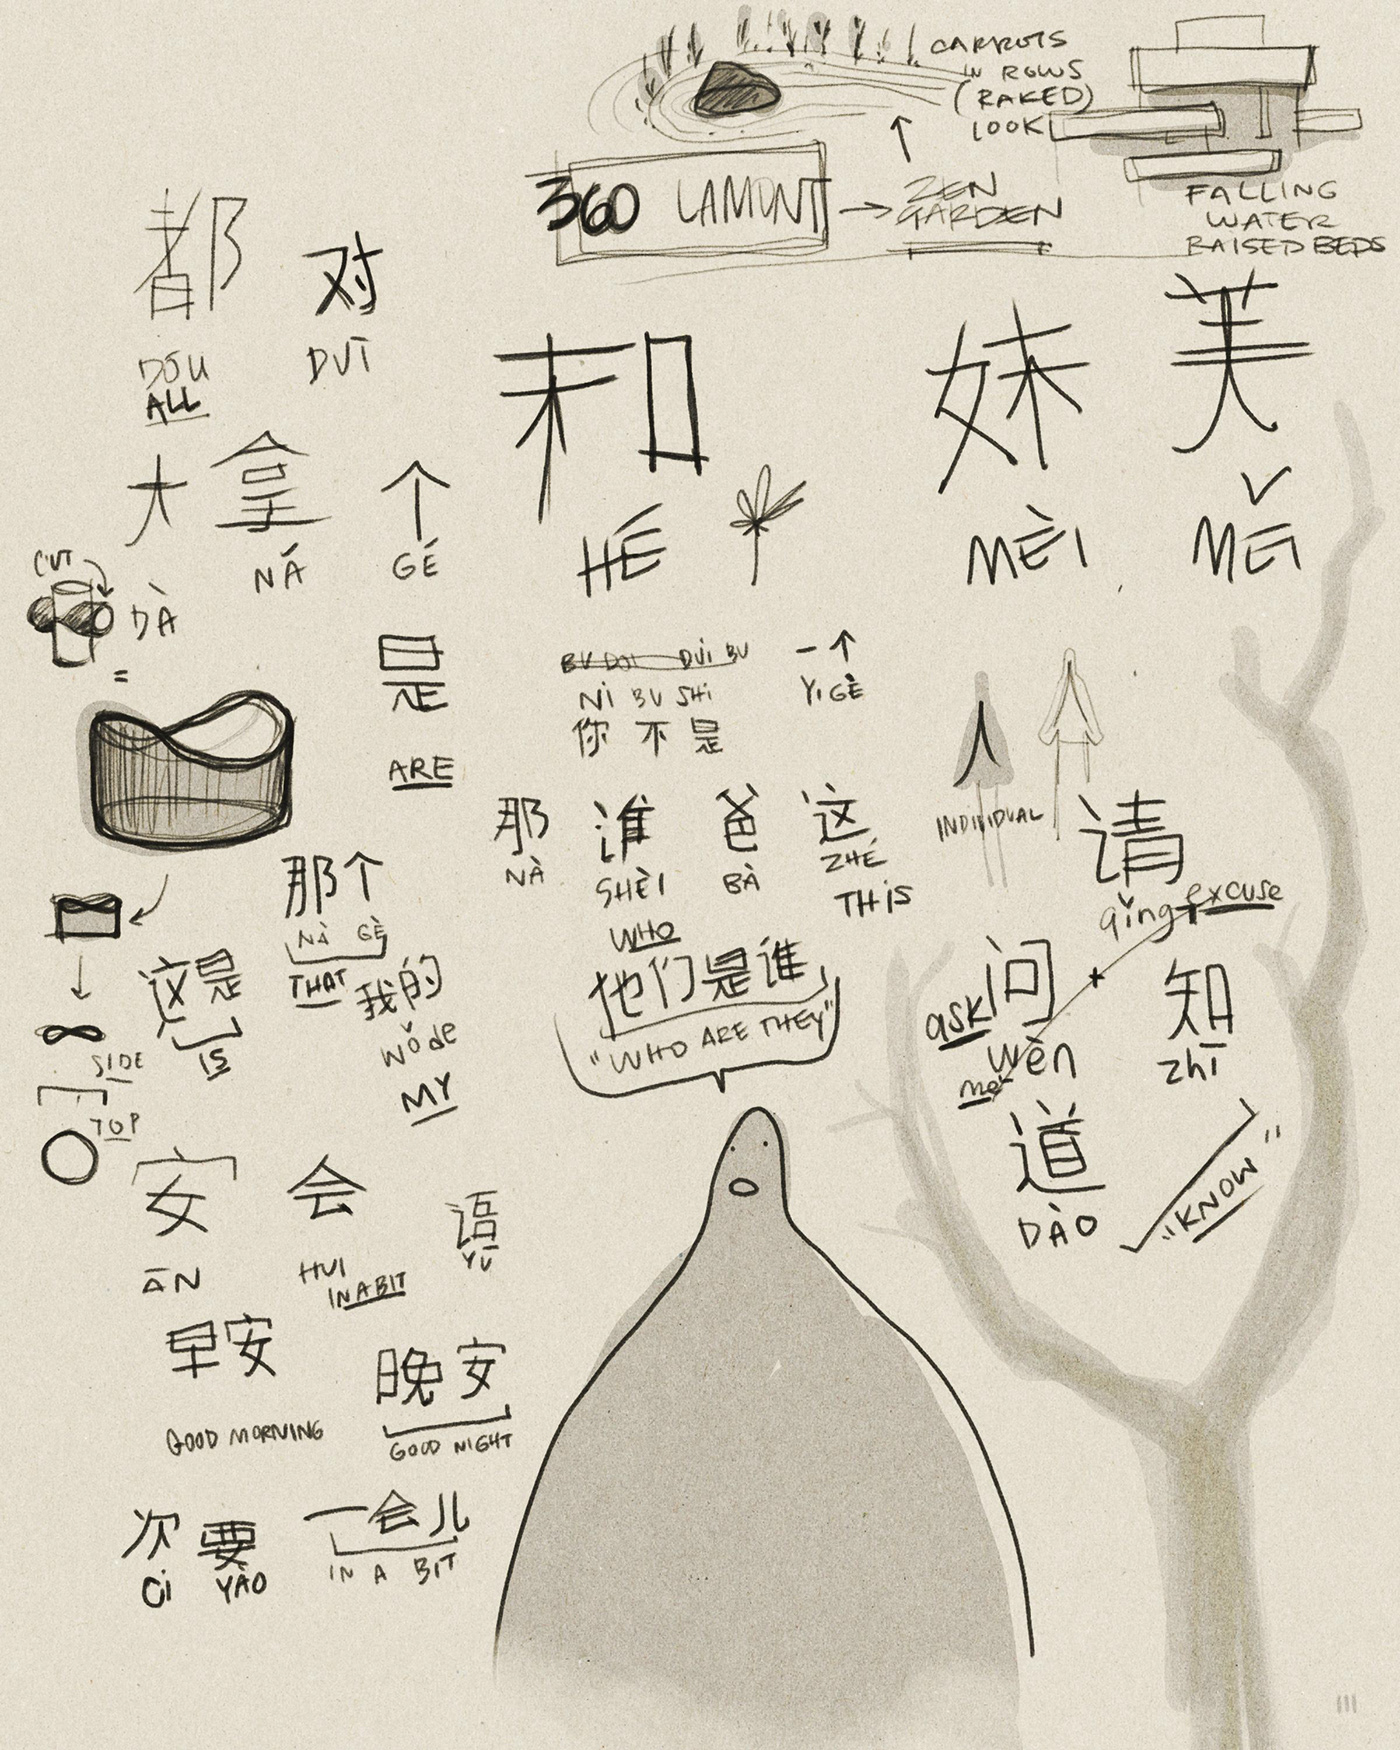 CARROTS
IN ROWS
(RAKED)
LOOK
360 LAMONT → ZEN
GARDEN
FALLING
WATER
RAISED BEDS
都 对
DŌU DUÌ
ALL
和
HÉ
妹 美
MÈI MĚI
大 拿 个
DÀ NÁ GÉ
CUT
=
是
ARE
BU DUI DUÌ BU
NǏ BU SHÌ
你 不 是
一个
YI GÈ
INDIVIDUAL
那 谁 爸 这
NÀ SHÉI BÀ ZHÉ
WHO THIS
那个
NÀ GÈ
THAT
这是
IS
我的
wǒ de
MY
SIDE
TOP
他们是谁
"WHO ARE THEY"
请
qǐng excuse
问
ask
wèn
me
知
zhī
道
DÀO
"KNOW"
安 会 语
ĀN HUI YŬ
IN A BIT
早安
GOOD MORNING
晚安
GOOD NIGHT
次 要
Cì YÀO
一会儿
IN A BIT
111